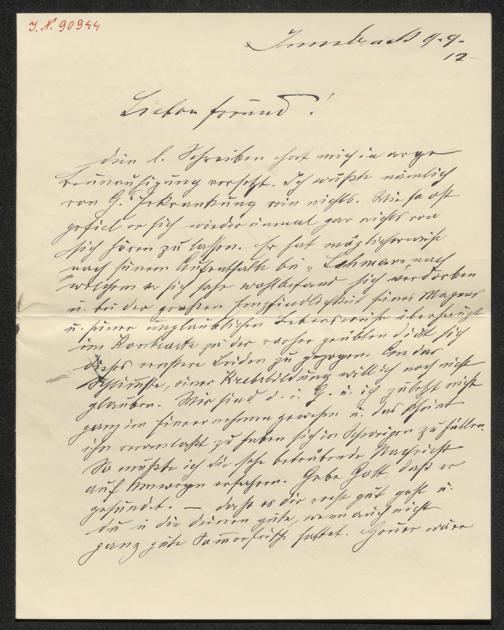 J. N. 90944
Innsbruck 9.9.
12
Lieber Freund!
Dein l. Schreiben hat mich in arge
Beunruhigung versetzt. Ich wußte nämlich
von G. Erkrankung rein nichts. Wie so oft
gefiel er sich wieder einmal gar nichts von
sich hören zu lassen. Er hat möglicherweise
nach seinem Aufenthalt bei „Lahmann", nach
welchem er sich sehr wohl befand sich verdorben
u. bei der großen Empfindlichkeit seines Magens
u. seiner unglaublichen Lebensweise überhaupt
im Kontraste zu der vorher geübten Diät sich
dieses ernstere Leiden zu gezogen. An das
Schlimmste, einer Krebsbildung will ich noch nicht
glauben. Wir sind d. i. G. u. ich zuletzt nicht
ganz im Einvernehmen gewesen u. das scheint
ihn veranlaßt zu haben sich in Schweigen zu hüllen.
So mußte ich die sehr betrübende Nachricht
auf Umwegen erfahren. Gebe Gott daß er
gesundet. — daß es dir recht gut geht u.
du u die deinen gute, wenn auch nicht
ganz gute Sommerfrische hattet. Heuer wäre